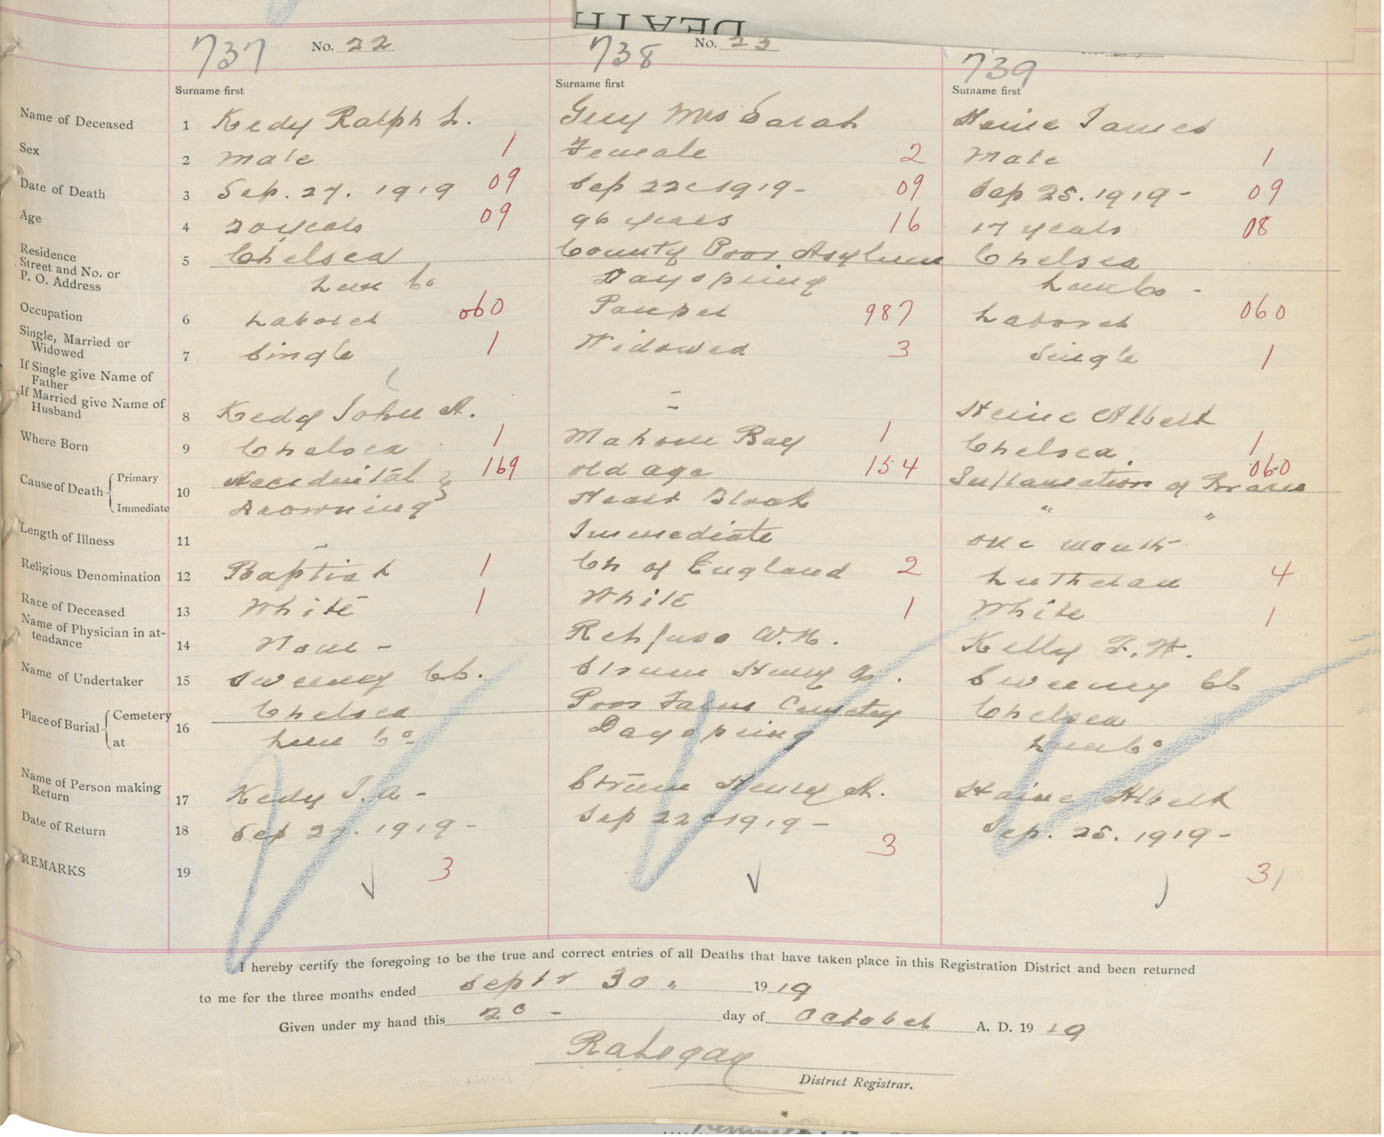 DEATH
737 No. 22 738 No. 23 739
Surname first Surname first Surname first
Name of Deceased 1 Kedy Ralph L. Guy Mrs Sarah Heine James
Sex 2 Male 1 Female 2 Male 1
Date of Death 3 Sep. 27. 1919 09 Sep 22 1919 - 09 Sep 25. 1919 - 09
Age 4 20 years 09 96 years 16 17 years 08
Residence Street and No. or P. O. Address 5 Chelsea County Poor Asylum Chelsea
Lun Co Dayspring Lun Co -
Occupation 6 Laborer 060 Pauper 987 Laborer 060
Single, Married or Widowed 7 Single 1 Widowed 3 Single 1
If Single give Name of Father
If Married give Name of Husband 8 Kedy John A. - Heine Albert
Where Born 9 Chelsea 1 Mahone Bay 1 Chelsea. 1
Cause of Death { Primary 10 Accidental } 169 Old age 154 Inflamation of Brain 060
Immediate Drowning Heart Block " "
Length of Illness 11 - Immediate one month
Religious Denomination 12 Baptist 1 Ch of England 2 Lutheran 4
Race of Deceased 13 White 1 White 1 White 1
Name of Physician in attendance 14 None - Rehfuss W.N. Kelly F. H.
Name of Undertaker 15 Sweeney CC. Strum Henry A. Sweeney CC
Place of Burial { Cemetery 16 Chelsea Poor Farm Cemetry Chelsea
at Lun Co Dayspring Lun Co
Name of Person making Return 17 Kedy J. A - Strum Henry A. Haine Albert
Date of Return 18 Sep 27. 1919 - Sep 22 1919 - Sep. 25. 1919 -
REMARKS 19 3 3 3
I hereby certify the foregoing to be the true and correct entries of all Deaths that have taken place in this Registration District and been returned
to me for the three months ended Septr 30. 1919
Given under my hand this 20 - day of October A. D. 1919
District Registrar.